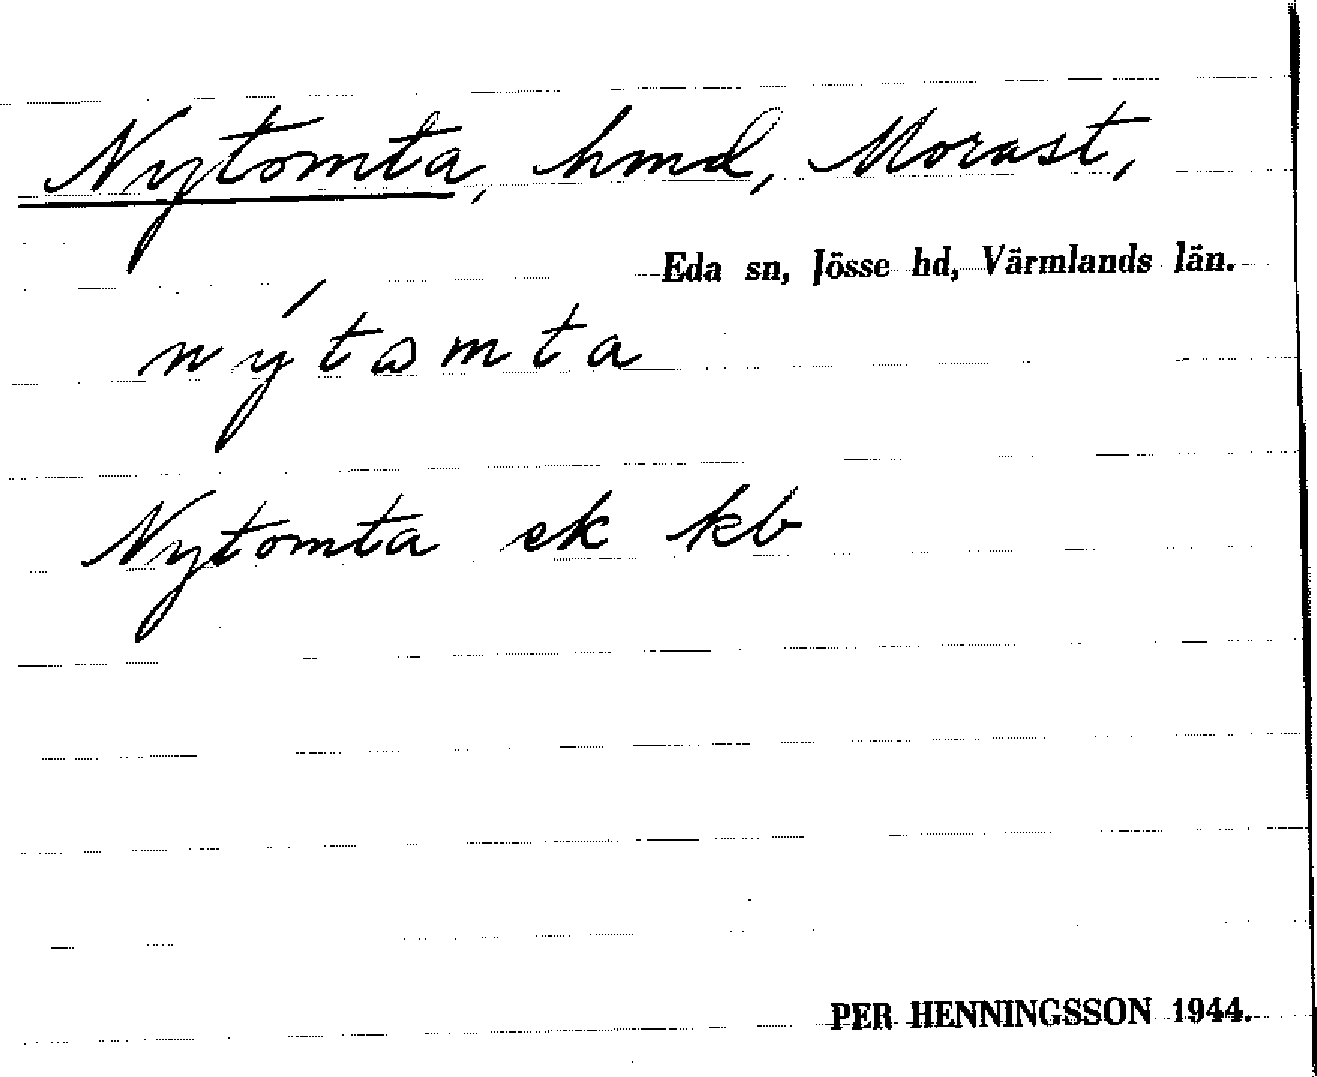 Nytomta, hmd, Morast,
Eda sn, Jösse hd, Värmlands län.
nýtωmta
Nytomta ek kb
PER HENNINGSSON 1944.